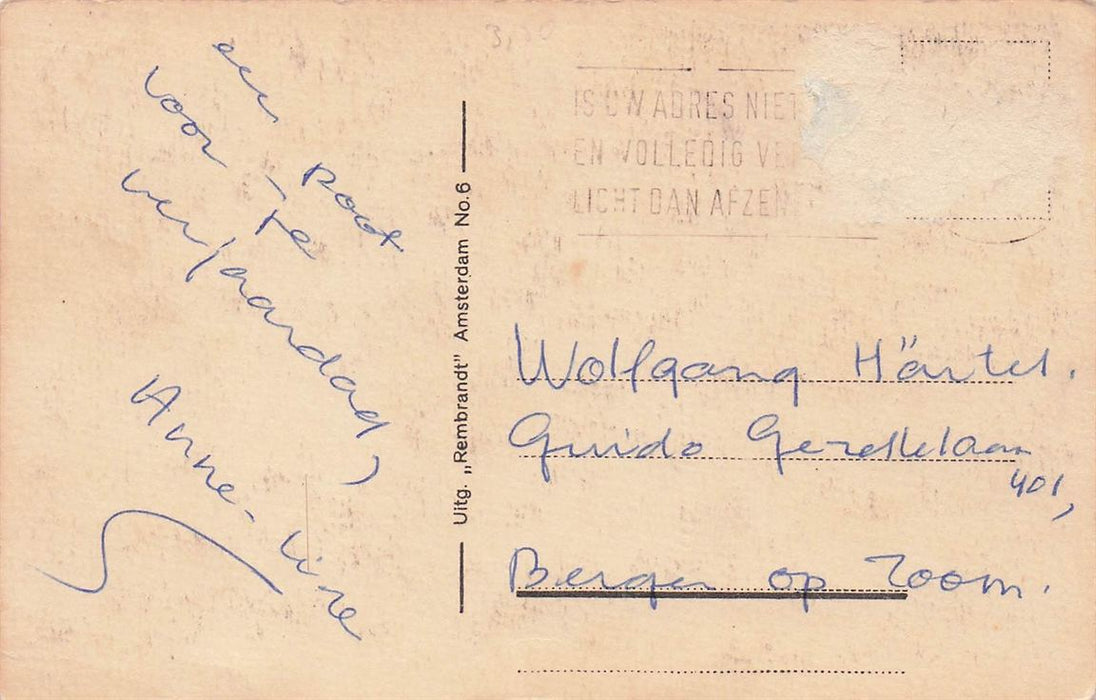 een poot
voor je
verjaardag,
Anne-Lize
Uitg. „Rembrandt” Amsterdam No.6
3,50
IS UW ADRES NIET
EN VOLLEDIG VE
LICHT DAN AFZEN
Wolfgang Härtel.
Guido Gezellelaan
401,
Bergen op Zoom.